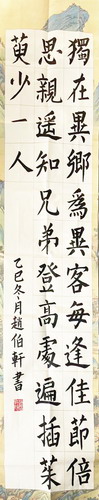 獨在異鄉為異客每逢佳節倍
思親遥知兄弟登高處遍插茱
萸少一人
乙巳冬月趙伯軒書